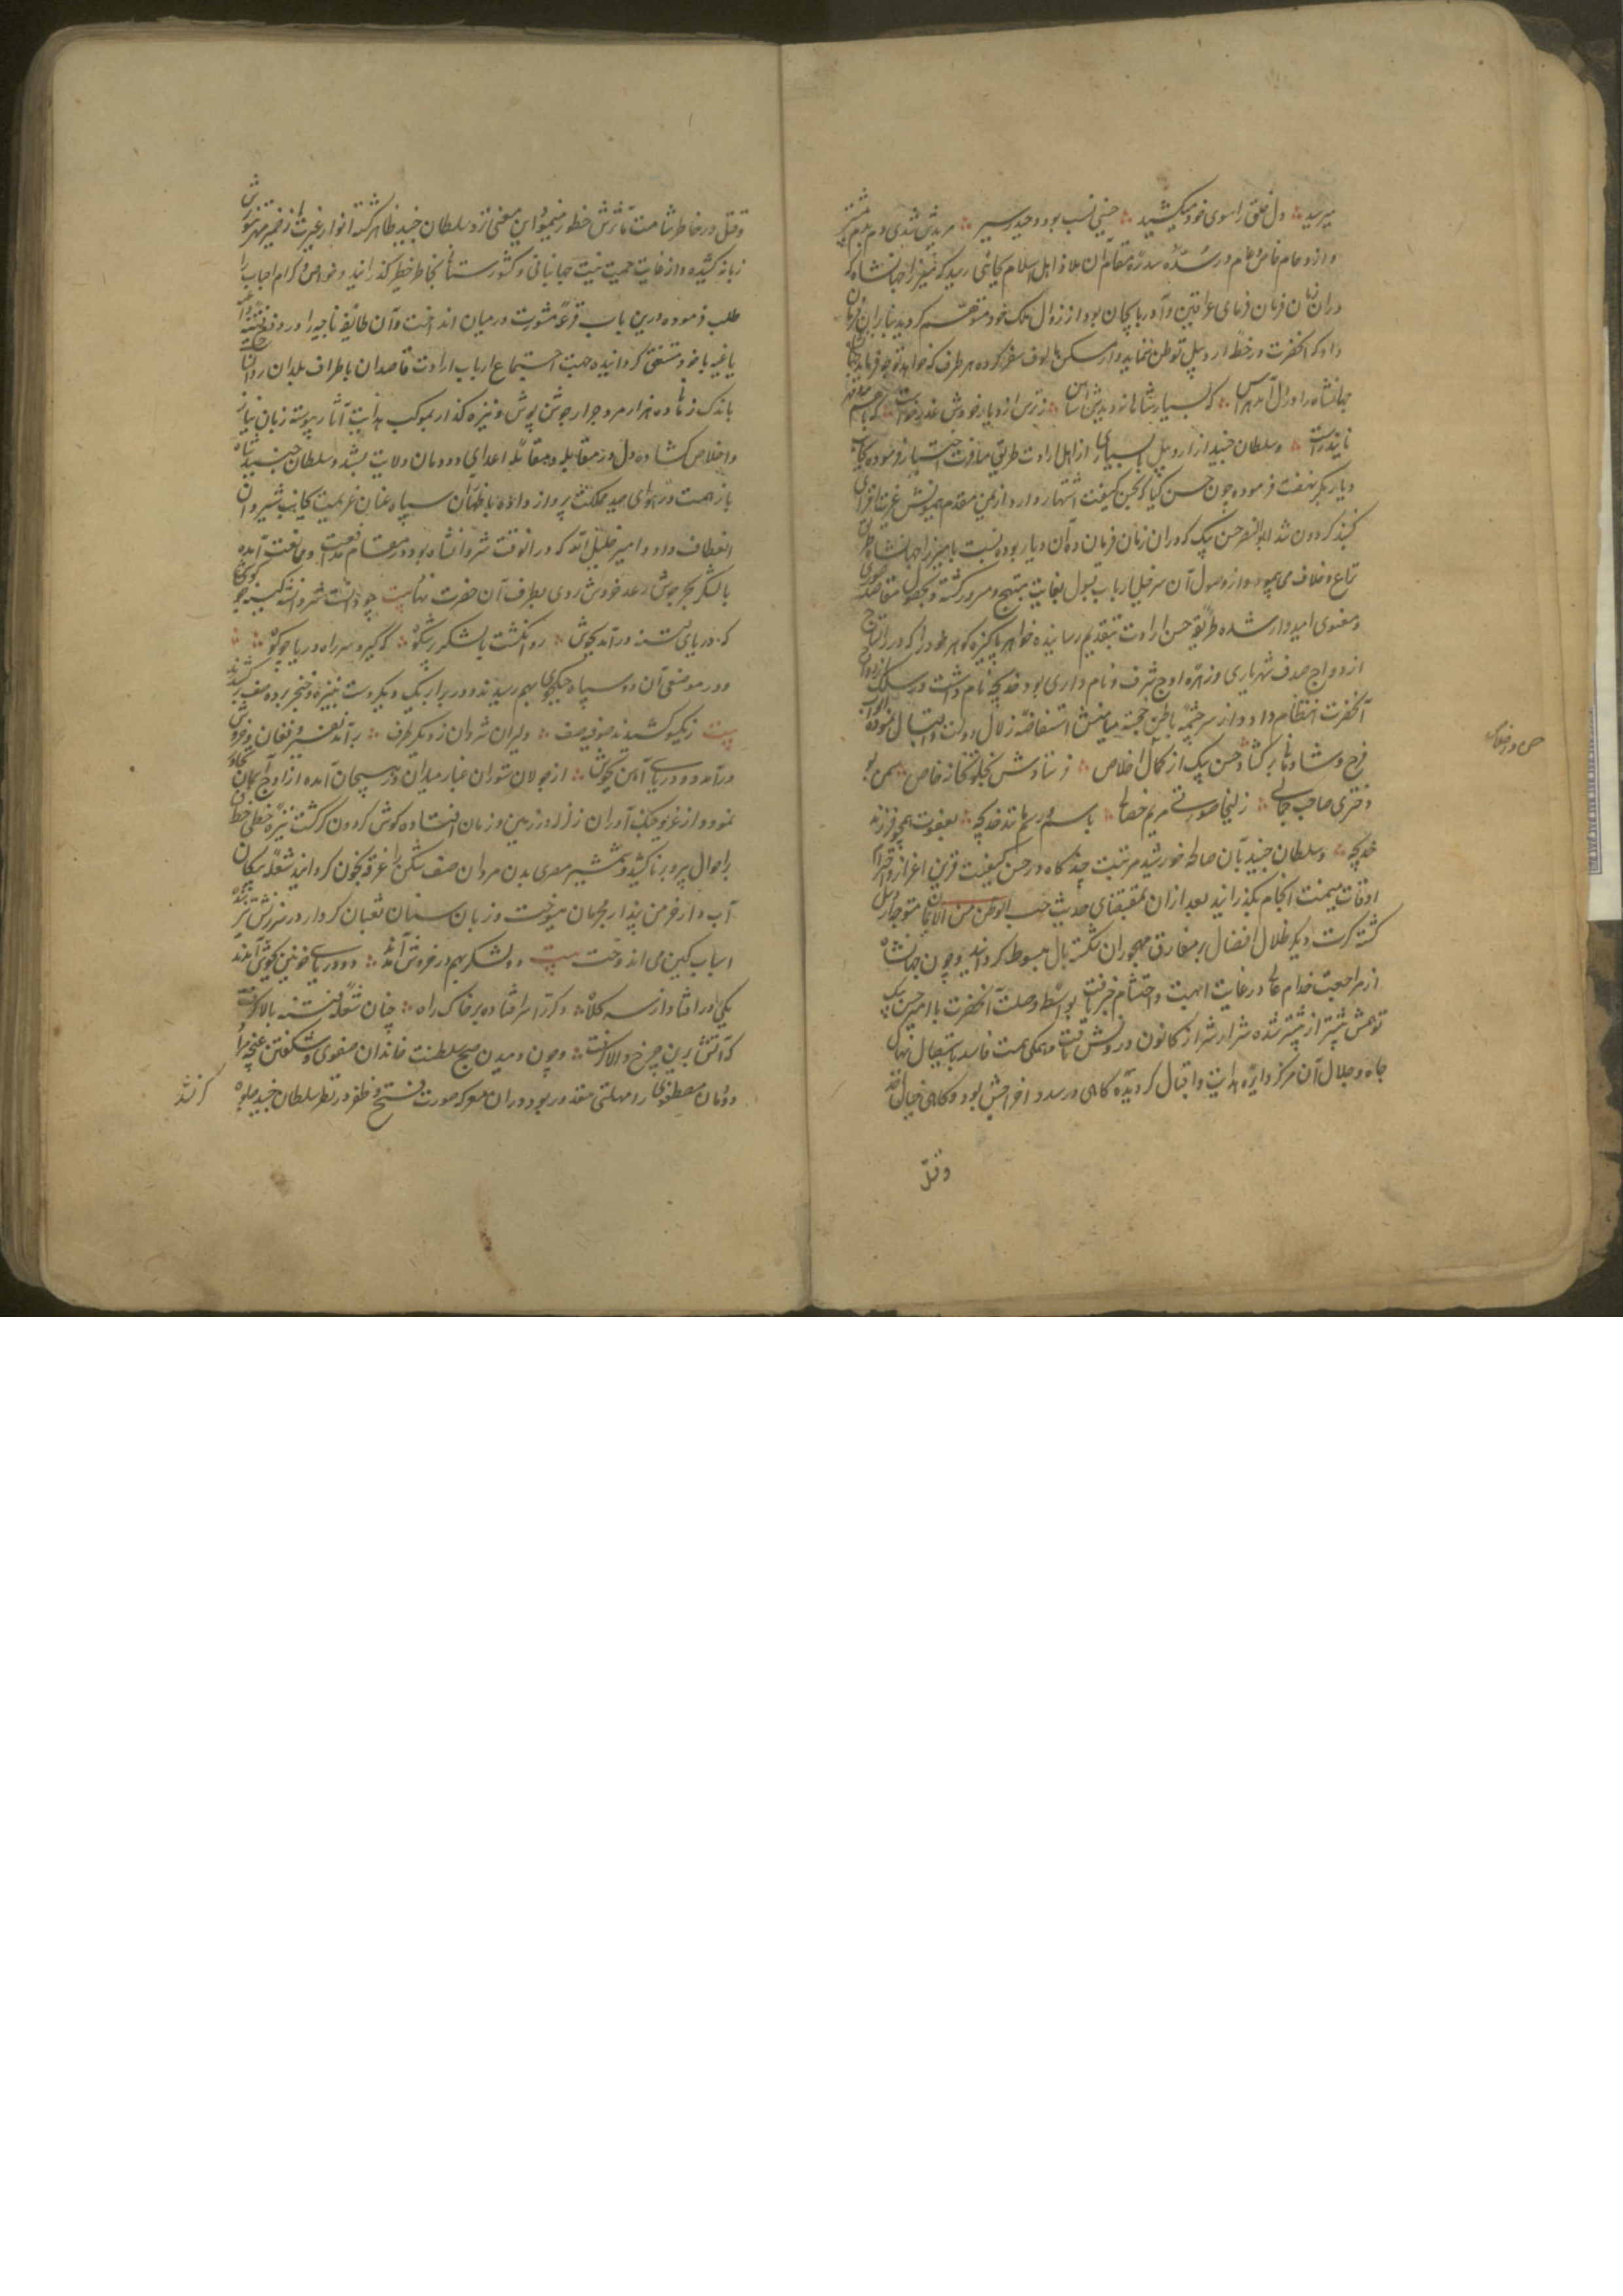 میرسید ؞ دل خلق را سوی خود میکشید ؞ حسینی نسب بود و حیدر سیر ؞ مریدش شدی دم بدم بیشتر
و ازدحام خاص و عام در سده سدره مقام آن ملاذ اهل اسلام بجائی رسید که میرزا جهانشاه که
دران زمان فرمان فرمای عراقین و آذربایجان بود از زوال ملک خود متوهم گردید بنابران فرمان
داد که آنحضرت در خطه اردبیل توطن ننماید و از مسکن مالوف سفر کرده هر طرف که خواهد توجه فرماید
جهانشاه را در دل آمد هراس ؞ که بسیار شاهانه دیدش اساس ؞ ز ترس از دیار خودش عذر خواست
؞ و سلطان جنید از اردبیل با بسیاری از اهل ارادت طریق مسافرت اختیار فرموده بجانب
دیاربکر نهضت فرموده چون حسن کیفا که بحسن کیفیت اشتهار دارد از یمن مقدم همیونش غیرت افزای
گنبد گردون شد ابوالنصر حسن بیک که دران زمان فرمان ده آن دیار بوده نسبت با میرزا جهانشاه طریق
نزاع و خلاف می پیمود از وصول آن سرخیل ارباب قبول بغایت مبتهج و مسرور گشته و بحصول مقاصد صوری
و معنوی امیدوار شده طریقه حسن ارادت بتقدیم رسانیده خواهر پاکیزه گوهر خود را که در
ازدواج صدف شهریاری و زهره اوج شرف و نامداری بود خدیجه نام داشت در سلک ازدواج
آنحضرت انتظام داد و از سرچشمه باطن خجسته میامنش استفاضه زلال دولت و اقبال نموده
فرح و شادمانی بر گشاد حسن بیک از کمال اخلاص ؞ فرستادش بخلوتخانه خاص
دختری صاحب جمالی ؞ زلیخا صورتی مریم خصالی ؞ باسم و رسم مانند خدیجه ؞ بعفت همچو فرزند
خدیجه ؞ و سلطان جنید بآن صالحه خورشید مرتبت چند گاه در حسن کیفیت قرین اعزاز و احترام
اوقات میمنت انجام بگذرانید بعد ازان بمقتضای حدیث حب الوطن من الایمان متوجه اردبیل
گشته کرت دیگر ظلال افضال بر مفارق مهجوران شکسته بال مبسوط گردانید و چون جهانشاه
از مراجعت خدام عالی در غایت ابهت و احتشام خبر یافت بواسطه وصلت آنحضرت با امیر حسن بیک
توهمش بیشتر از پیشتر شده شرار شر از کانون درونش تافت و همگی همت فاسد باستیصال نهال
جاه و جلال آن مرکز دایره هدایت و اقبال گردیده گاهی در صدد اخراجش بود و گاهی خیال قصد
و قتل
قتل در خاطر شامت مآثرش خطور مینمود این معنی نزد سلطان جنید ظاهر گشته انوار غیرت از ضمیر
زبانه کشیده و از غایت حمیت نیت جهانبانی و کشورستانی بخاطر خطیر گذرانید و خواص کرام احباب را
طلب فرموده درین باب قرعه مشورت در میان انداخت و آن طایفه ناجیه را در دفع فئه
باغیه با خود متفق گردانیده جهت اجتماع ارباب ارادت قاصدان باطراف بلدان روان ساخت
باندک زمانی ده هزار مرد جرار جوشن پوش و نیزه گذار بموکب هدایت آثار پیوسته زبان نیاز
و اخلاص گشاده دل در مقابله و مقاتله اعدای دودمان ولایت بستند و سلطان جنید شاه
باز همت در هوای صید مملکت پرواز داده باطمنان سپاه عنان عزیمت بجانب شیروان
انعطاف داد و امیر خلیل الله که دران وقت شروانشاه بود در مقام مدافعت و ممانعت آمده
با لشکر بحر جوش رعد خروش روی بطرف آن حضرت نهاد بیت چو دانست شروانشه کینه جوی
که دریای فتنه درآمد بجوش ؞ روان گشت با لشکر پر شکوه ؞ که گیرد سر راه دریا چو کوه ؞
و در موضعی آن دو سپاه جنگجوی بهم رسیدند و در برابر یکدیگر دست بنیزه و خنجر برده صف برکشیدند
بیت ز یکسو کشیدند صوفیه صف ؞ دلیران شروان ز دیگر طرف ؞ برآمد نفیر و فغان و خروش
درآمد دو دریای آهن بجوش ؞ از جولان ستوران غبار میدان در هیجان آمده از اوج آسمان تجاوز
نمود و از غریو جنگ آوران زلزله در زمین و زمان افتاده گوش گردون کر گشت نیزه خطی خط
بر احوال پیر و برنا کشید و شمشیر مصری بدن مردان صف شکن را غرقه بخون گردانید شعله پیکان
آب دار خرمن پندار مجرمان میسوخت و زبان سنان ثعبان کردار در سرزنش
اسباب کین می اندوخت بیت دو لشکر بهم در خروش آمدند ؞ دو دریای خونین بجوش آمدند
یکی را در افتاد از سر کلاه ؞ دگر را سر افتاده بر خاک راه ؞ چنان شعله فتنه بالا گرفت
که آتش برین چرخ والا گرفت ؞ و چون دمیدن صبح سلطنت خاندان صفوی و شکفتن غنچه مراد
دودمان مصطفوی را مهلتی مقدر بود دران معرکه صورت فتح و ظفر در نظر سلطان جنید جلوه
گر نشد